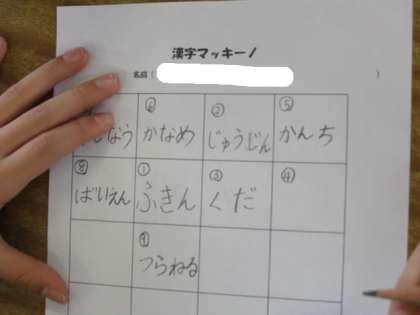 漢字マッキーノ
名前( )
⑥ ② ⑤
なう かなめ じゅうじん かんち
⑧ ① ③ ④
ばいえん ふきん くだ
⑨
つらねる